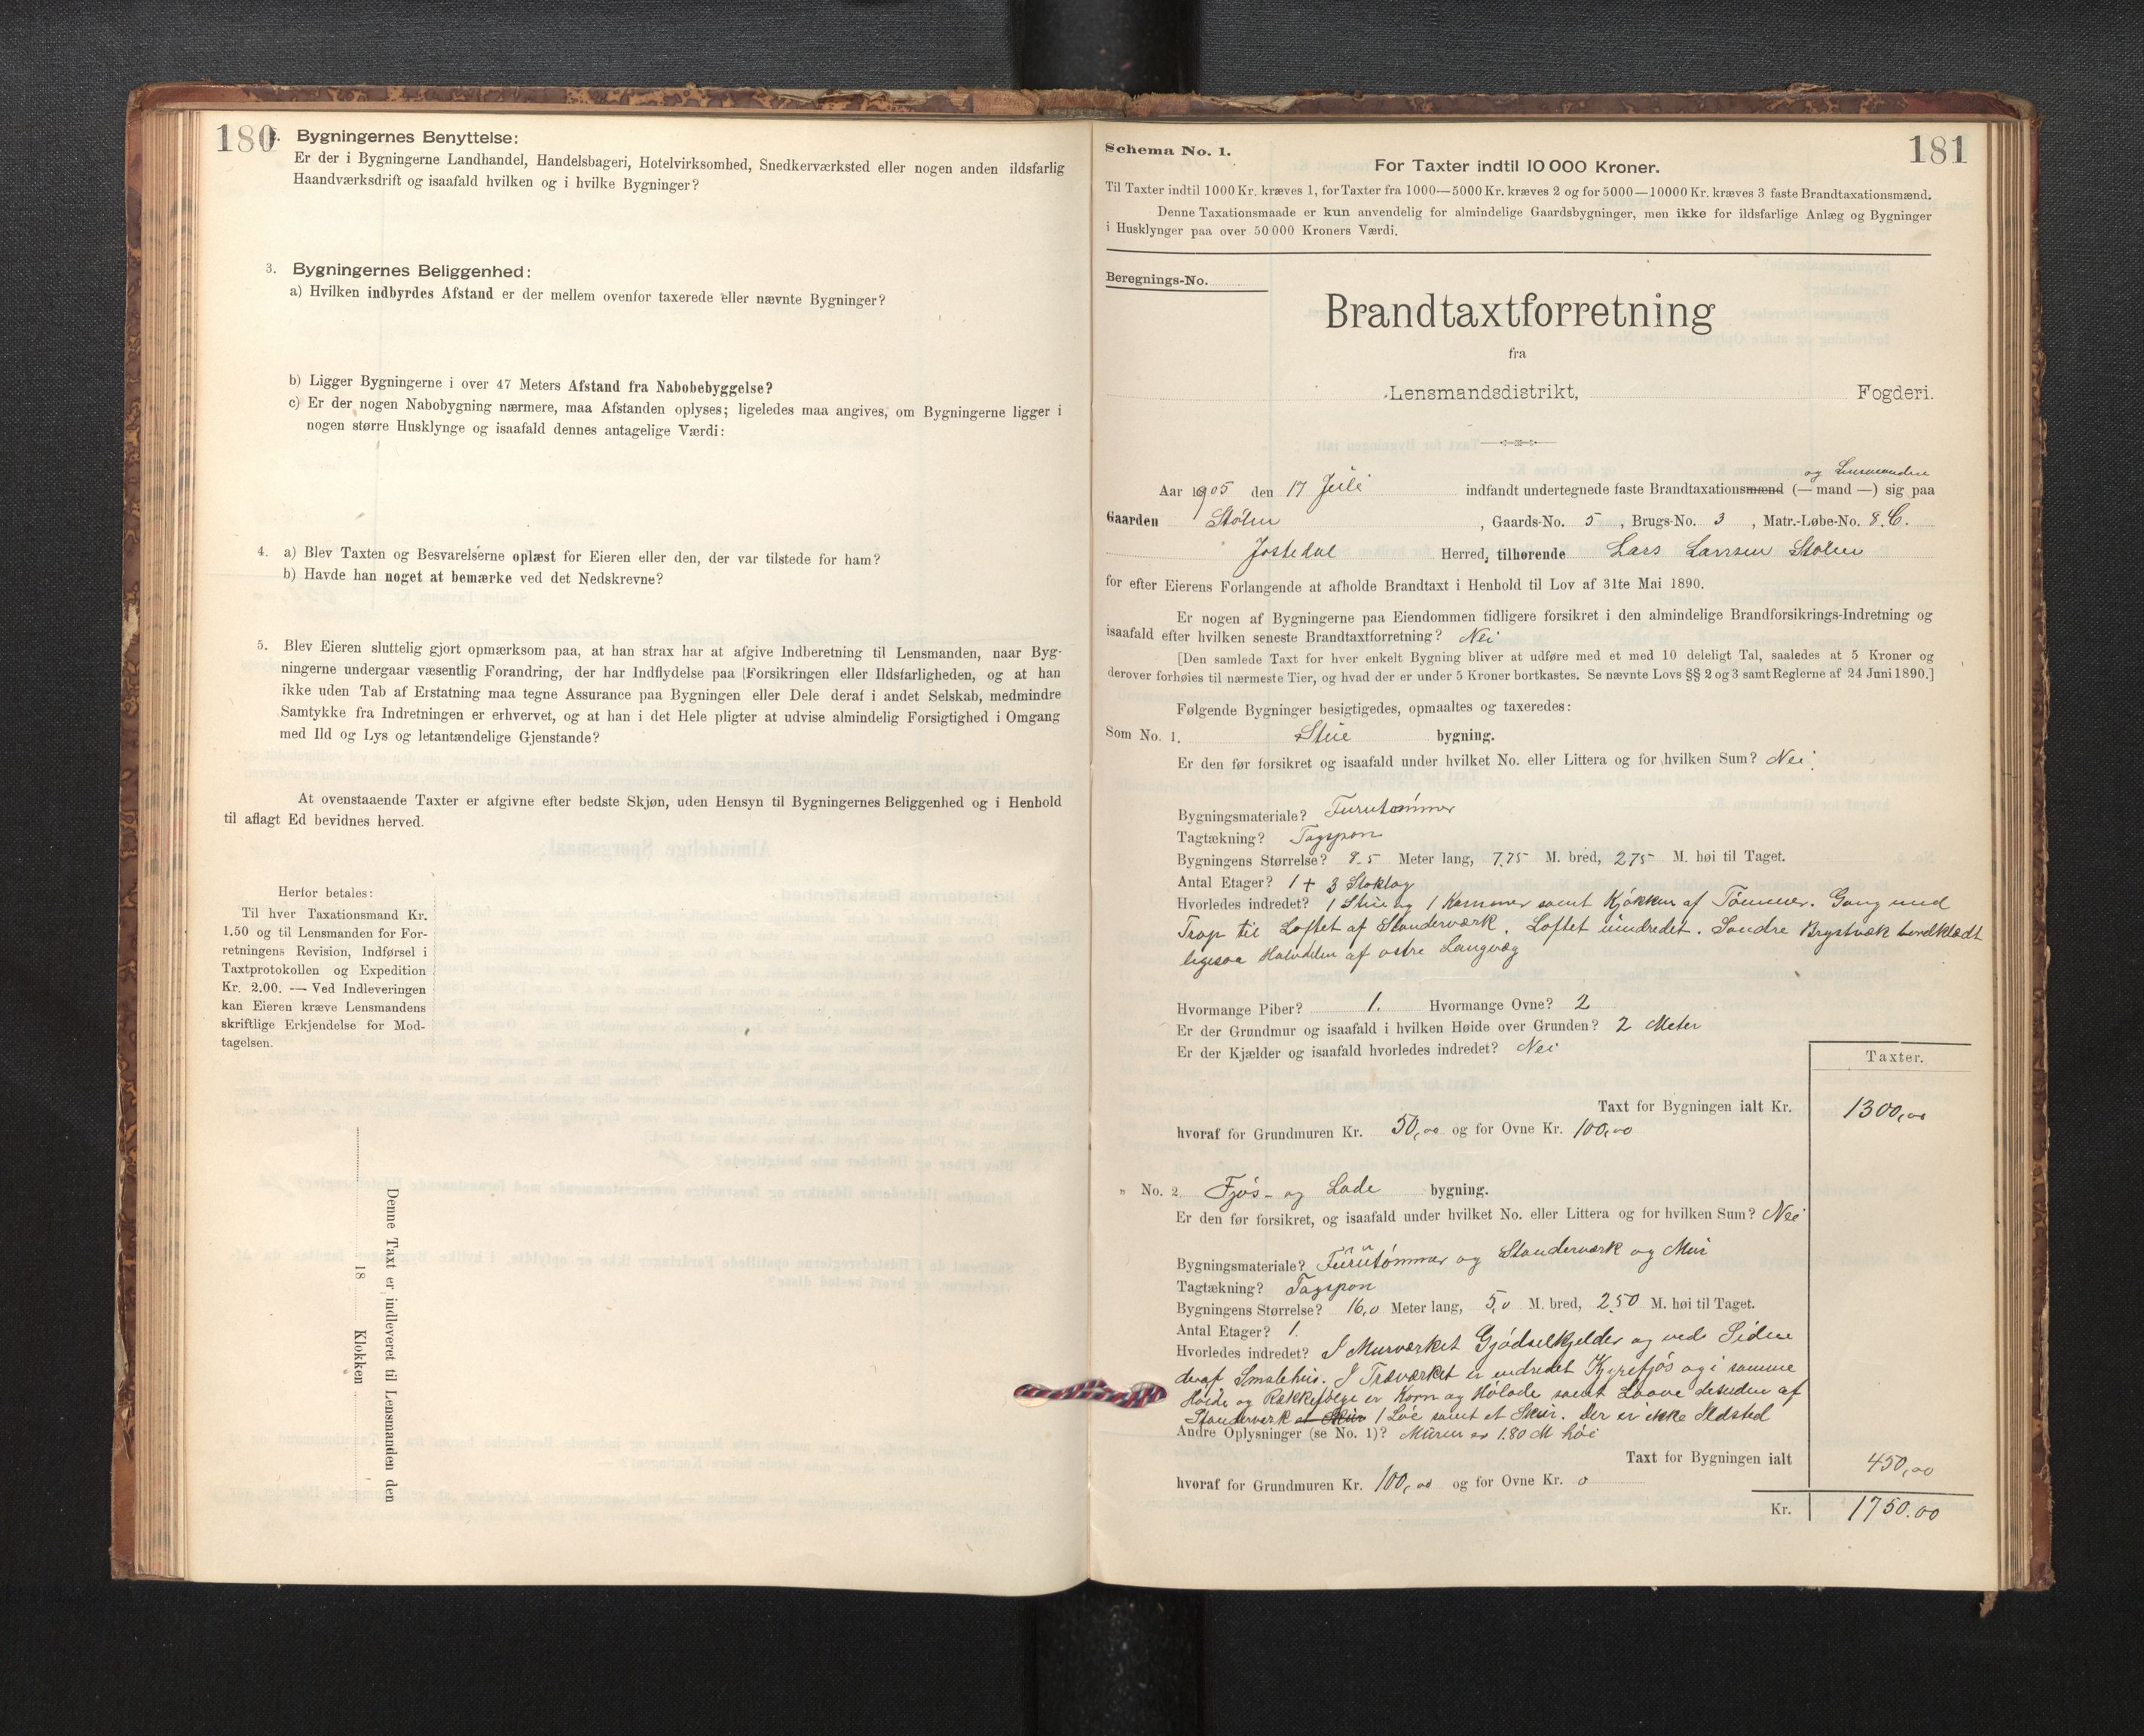 180
2. Bygningernes Benyttelse:
Er der i Bygningerne Landhandel, Handelsbageri, Hotelvirksomhed, Snedkerværksted eller nogen anden ildsfarlig
Haandværksdrift og isaafald hvilken og i hvilke Bygninger?
3. Bygningernes Beliggenhed:
a) Hvilken indbyrdes Afstand er der mellem ovenfor taxerede eller nævnte Bygninger?
b) Ligger Bygningerne i over 47 Meters Afstand fra Nabobebyggelse?
c) Er der nogen Nabobygning nærmere, maa Afstanden oplyses; ligeledes maa angives, om Bygningerne ligger i
nogen større Husklynge og isaafald dennes antagelige Værdi:
4. a) Blev Taxten og Besvarelserne oplæst for Eieren eller den, der var tilstede for ham?
b) Havde han noget at bemærke ved det Nedskrevne?
5. Blev Eieren sluttelig gjort opmærksom paa, at han strax har at afgive Indberetning til Lensmanden, naar Byg-
ningerne undergaar væsentlig Forandring, der har Indflydelse paa Forsikringen eller Ildsfarligheden, og at han
ikke uden Tab af Erstatning maa tegne Assurance paa Bygningen eller Dele deraf i andet Selskab, medmindre
Samtykke fra Indretningen er erhvervet, og at han i det Hele pligter at udvise almindelig Forsigtighed i Omgang
med Ild og Lys og letantændelige Gjenstande?
At ovenstaaende Taxter er afgivne efter bedste Skjøn, uden Hensyn til Bygningernes Beliggenhed og i Henhold
til aflagt Ed bevidnes herved.
Herfor betales:
Til hver Taxationsmand Kr.
1.50 og til Lensmanden for For-
retningens Revision, Indførsel i
Taxtprotokollen og Expedition
Kr. 2.00. — Ved Indleveringen
kan Eieren kræve Lensmandens
skriftlige Erkjendelse for Mod-
tagelsen.
Denne Taxt er indleveret til Lensmanden den
18 Klokken
181
Schema No. 1.
For Taxter indtil 10 000 Kroner.
Til Taxter indtil 1000 Kr. kræves 1, for Taxter fra 1000—5000 Kr. kræves 2 og for 5000—10000 Kr. kræves 3 faste Brandtaxationsmænd.
Denne Taxationsmaade er kun anvendelig for almindelige Gaardsbygninger, men ikke for ildsfarlige Anlæg og Bygninger
i Husklynger paa over 50 000 Kroners Værdi.
Beregnings-No.
Brandtaxtforretning
fra
Lensmandsdistrikt, Fogderi.
og Lensmanden
Aar 1905 den 17 Juli indfandt undertegnede faste Brandtaxationsmænd (—mand—) sig paa
Gaarden Stølen, Gaards-No. 5, Brugs-No. 3, Matr.-Løbe-No. 8.C.
Jostedal Herred, tilhørende Lars Larsen Stølen
for efter Eierens Forlangende at afholde Brandtaxt i Henhold til Lov af 31te Mai 1890.
Er nogen af Bygningerne paa Eiendommen tidligere forsikret i den almindelige Brandforsikrings-Indretning og
isaafald efter hvilken seneste Brandtaxtforretning? Nei
[Den samlede Taxt for hver enkelt Bygning bliver at udføre med et med 10 deleligt Tal, saaledes at 5 Kroner og
derover forhøies til nærmeste Tier, og hvad der er under 5 Kroner bortkastes. Se nævnte Lovs §§ 2 og 3 samt Reglerne af 24 Juni 1890.]
Følgende Bygninger besigtigedes, opmaaltes og taxeredes:
Som No. 1. Stue bygning.
Er den før forsikret og isaafald under hvilket No. eller Littera og for hvilken Sum? Nei
Bygningsmateriale? Furutømmer
Tagtækning? Tagspon
Bygningens Størrelse? 8.5 Meter lang, 7.75 M. bred, 2.75 M. høi til Taget.
Antal Etager? 1 + 3 Stoklag
Hvorledes indredet? 1 Stue og 1 Kammer samt Kjøkken af Tømmer. Gang med
Trap til Loftet af Standerværk. Loftet uindredet. Søndre Brystvæk bordklædt
ligesaa Halvdelen af østre Langvæg
Hvormange Piber? 1. Hvormange Ovne? 2
Er der Grundmur og isaafald i hvilken Høide over Grunden? 2 Meter
Er der Kjælder og isaafald hvorledes indredet? Nei
Taxter.
Taxt for Bygningen ialt Kr. 1300,00
hvoraf for Grundmuren Kr. 50,00 og for Ovne Kr. 100,00
" No. 2 Fjøs- og Lade bygning.
Er den før forsikret, og isaafald under hvilket No. eller Littera og for hvilken Sum? Nei
Bygningsmateriale? Furutømmer og Standerværk og Mur
Tagtækning? Tagspon
Bygningens Størrelse? 16,0 Meter lang, 5,0 M. bred, 2.50 M. høi til Taget.
Antal Etager? 1.
Hvorledes indredet? I Murværket Gjødselkjelder og ved Siden
deraf Smalehus. I Træværket er indredet Kyrefjøs og i samme
Høide og Rækkefølge er Korn og Hølade samt Laave desuden af
Standerværk et Skur 1 Løe samt et Skur. Der er ikke Ildsted
Andre Oplysninger (se No. 1)? Muren er 1.80 M høi
Taxt for Bygningen ialt 450,00
hvoraf for Grundmuren Kr. 100,00 og for Ovne Kr. 0
Kr. 1750.00